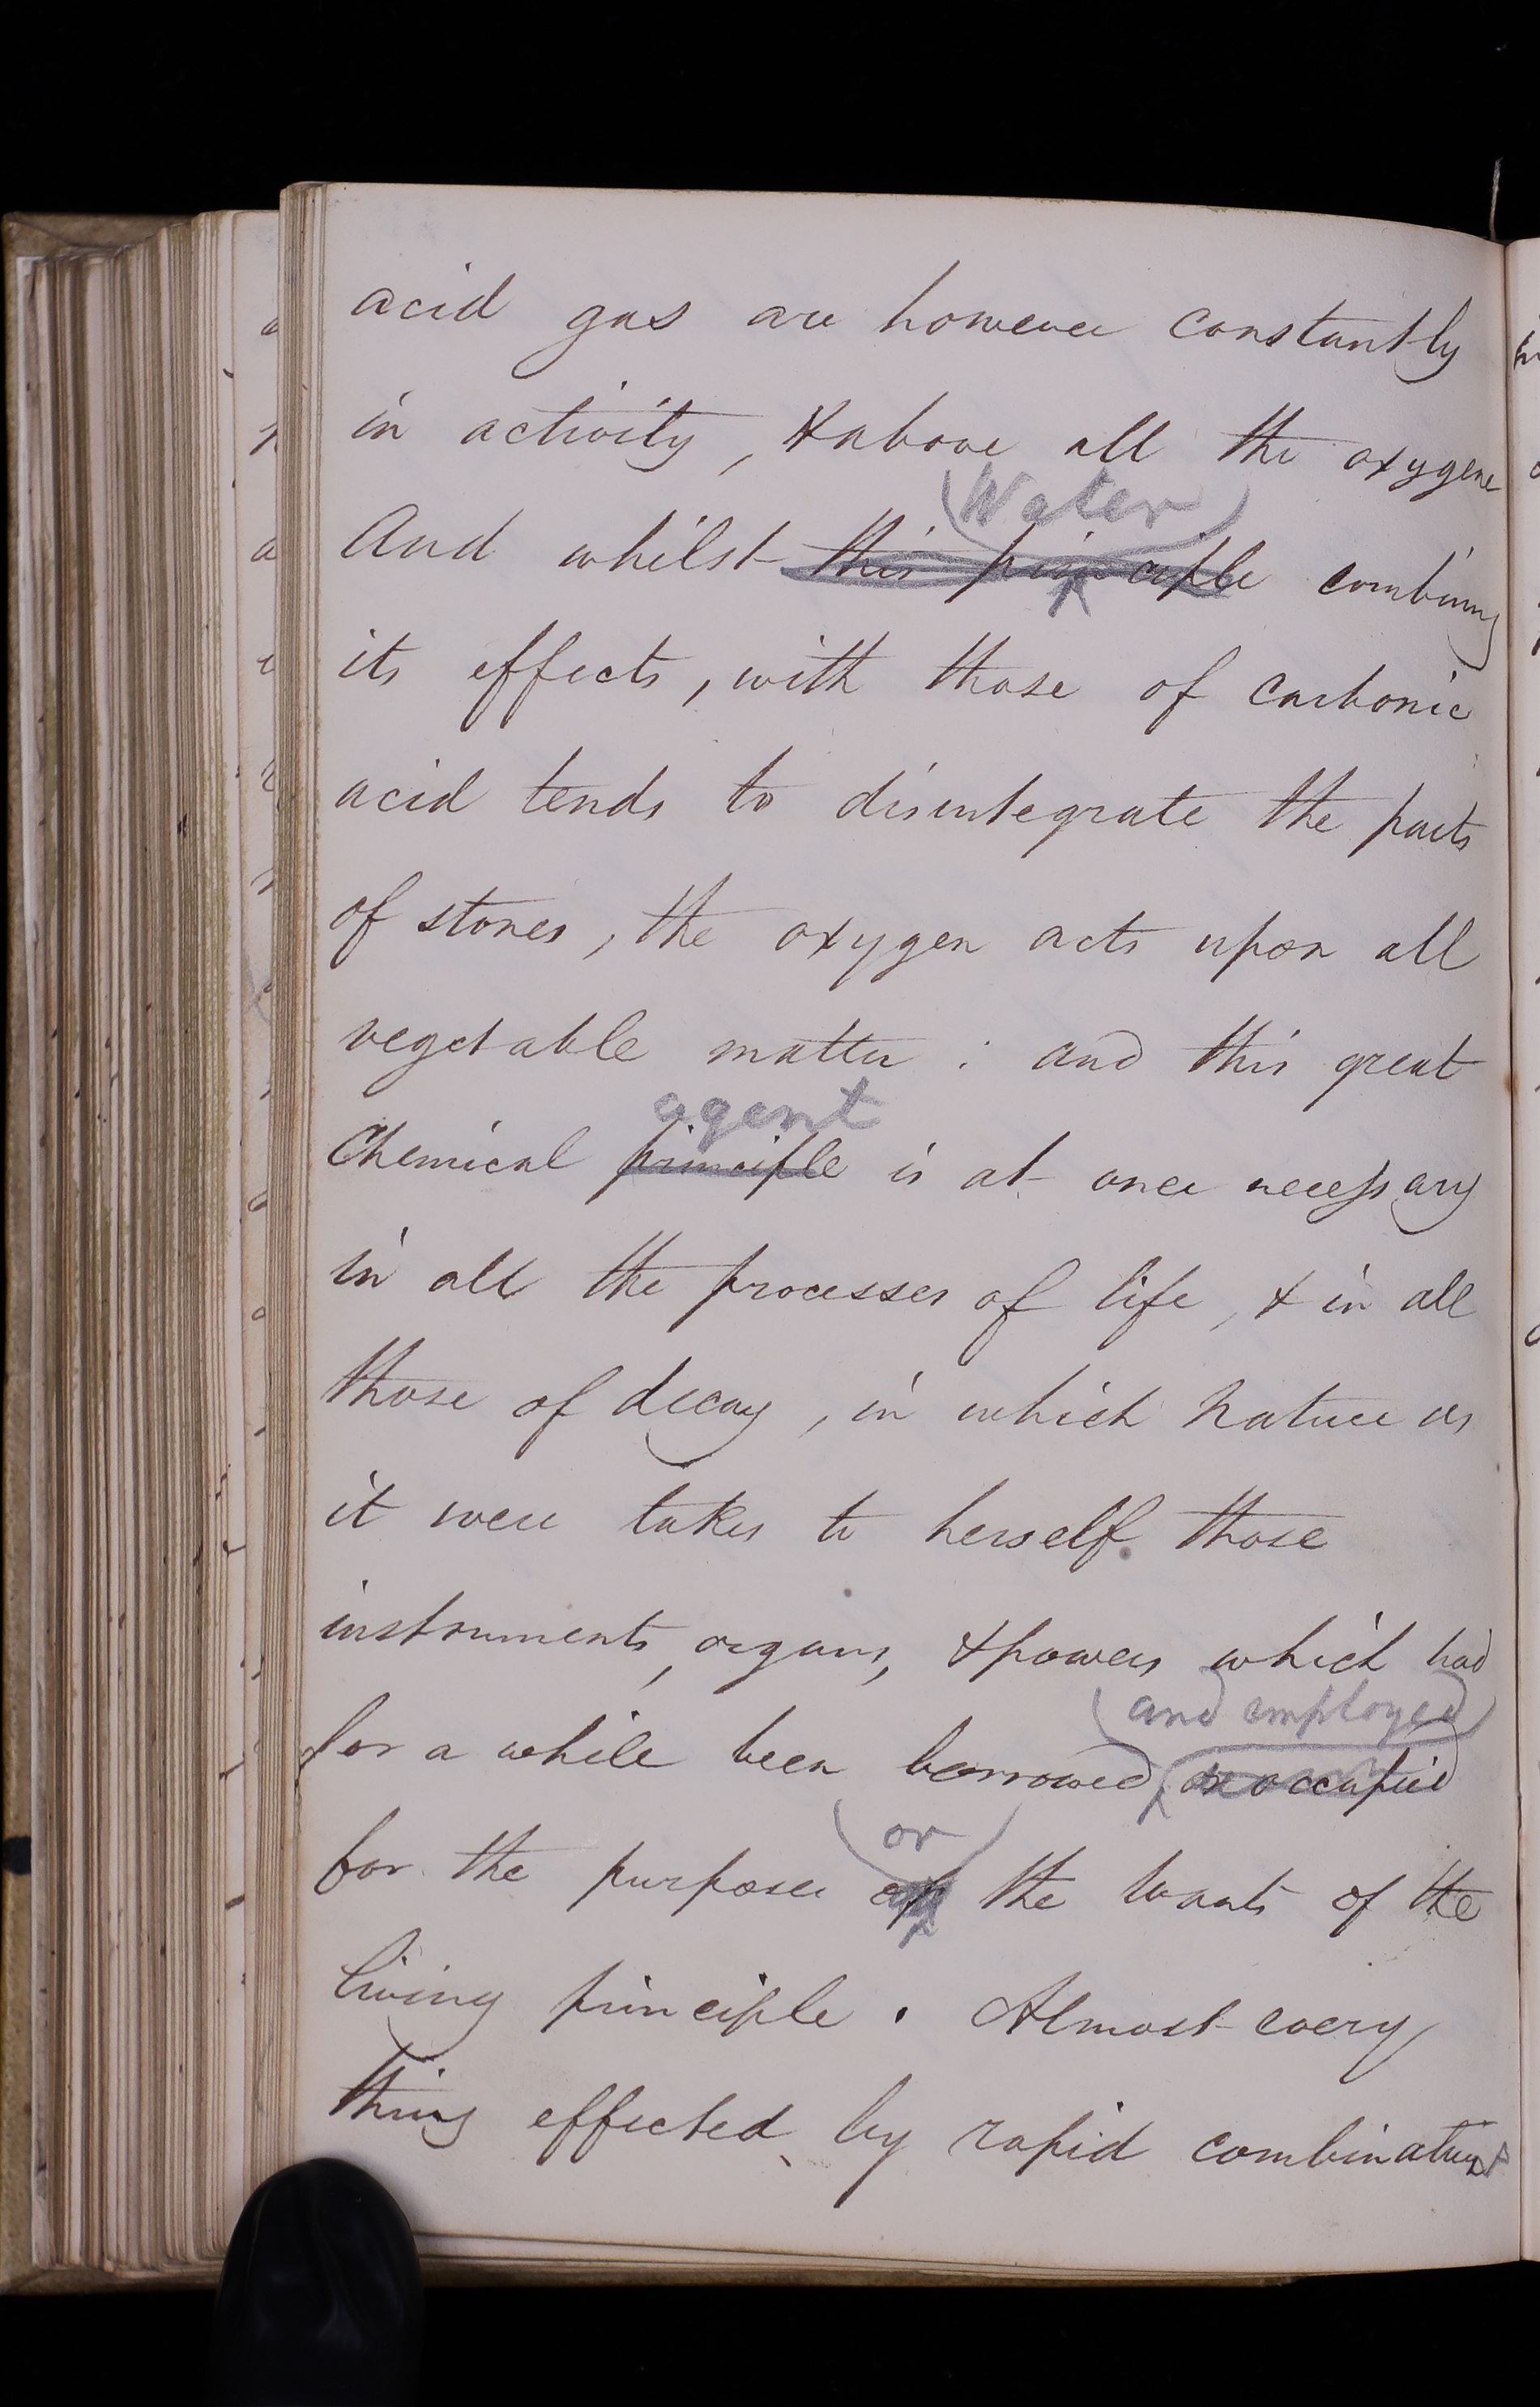 acid gas are however constantly
in activity, & above all the oxygene
Water
And whilst this principle combining
its effects, with those of carbonic
acid tends to disintegrate the parts
of stones, the oxygen acts upon all
vegetable matter : and this great
agent
Chemical principle is at once necessary
in all the processes of life, & in all
those of decay, in which Nature as
it were takes to herself those
instruments, organs, & powers which had
and employed
for a while been borrowed, or occupied
or
for the purposes of the wants of the
living principle. Almost every
thing effected by rapid combinations